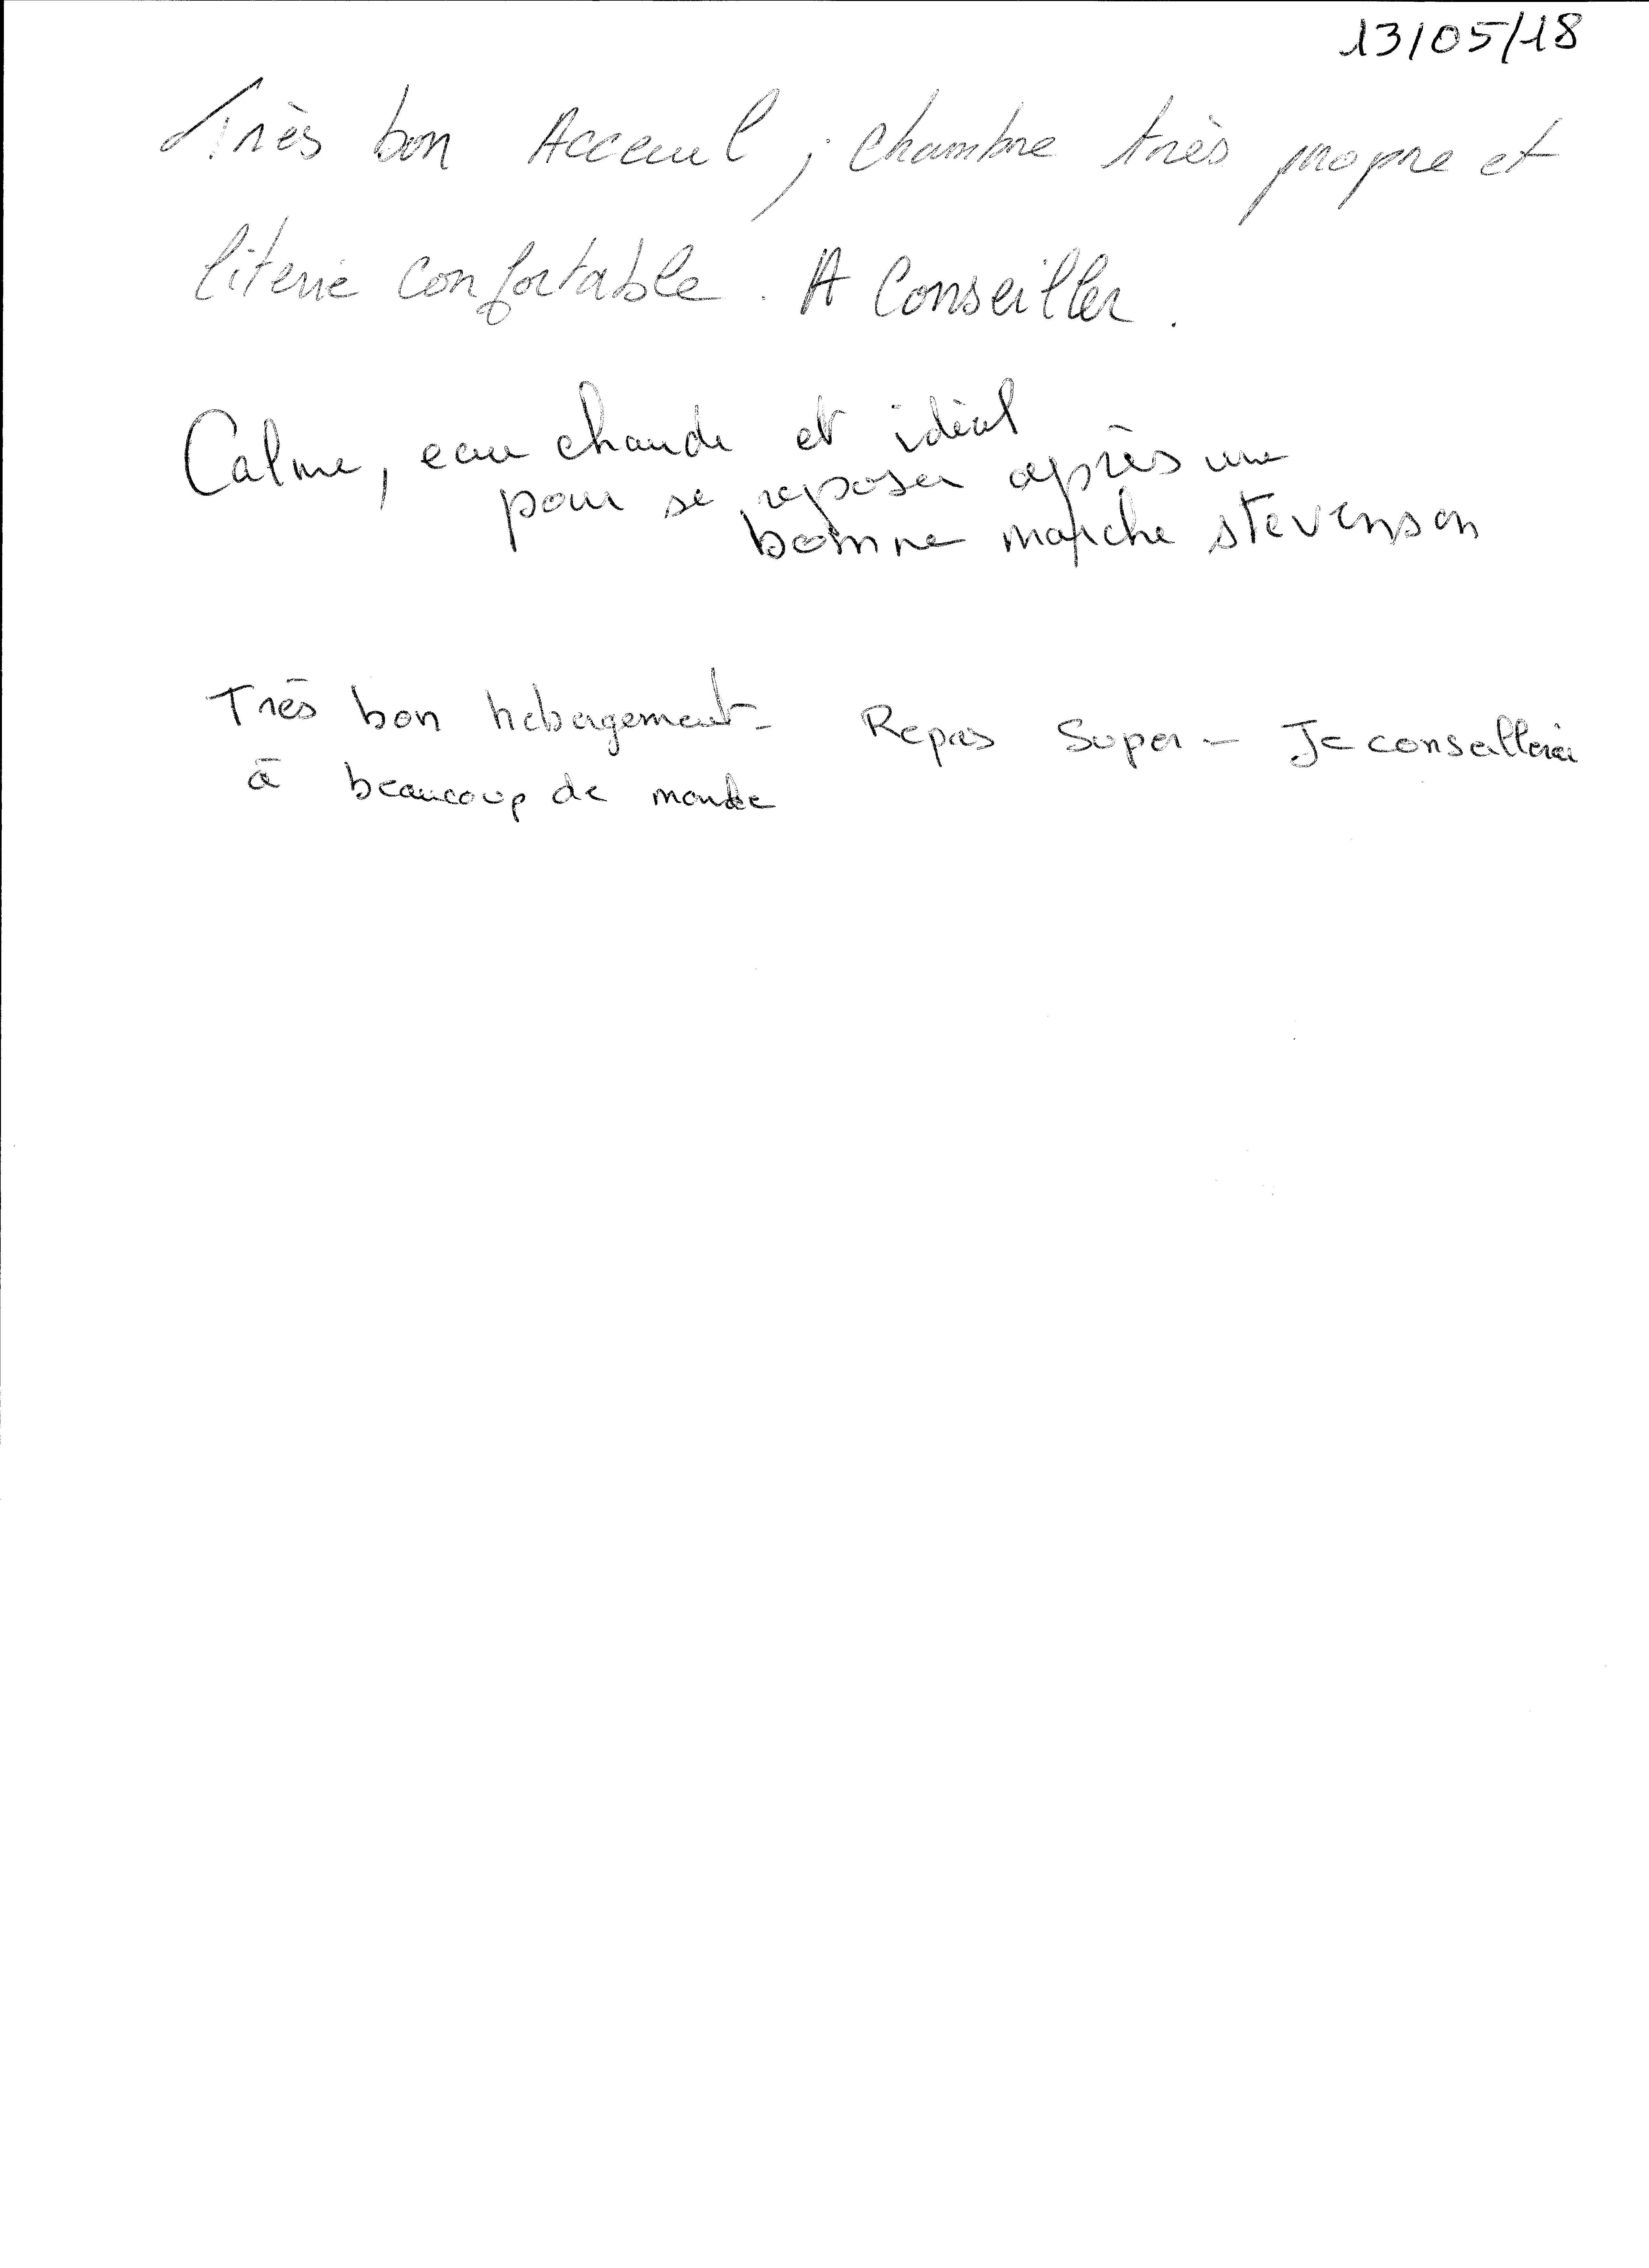 13/05/18
Très bon Acceuil, chambre très propre et
literie confortable. A Conseiller.
Calme, eau chaude et idéal
pour se reposer après une
bonne marche stevenson
Très bon hebergement - Repas Super - Je conseillerai
à beaucoup de monde